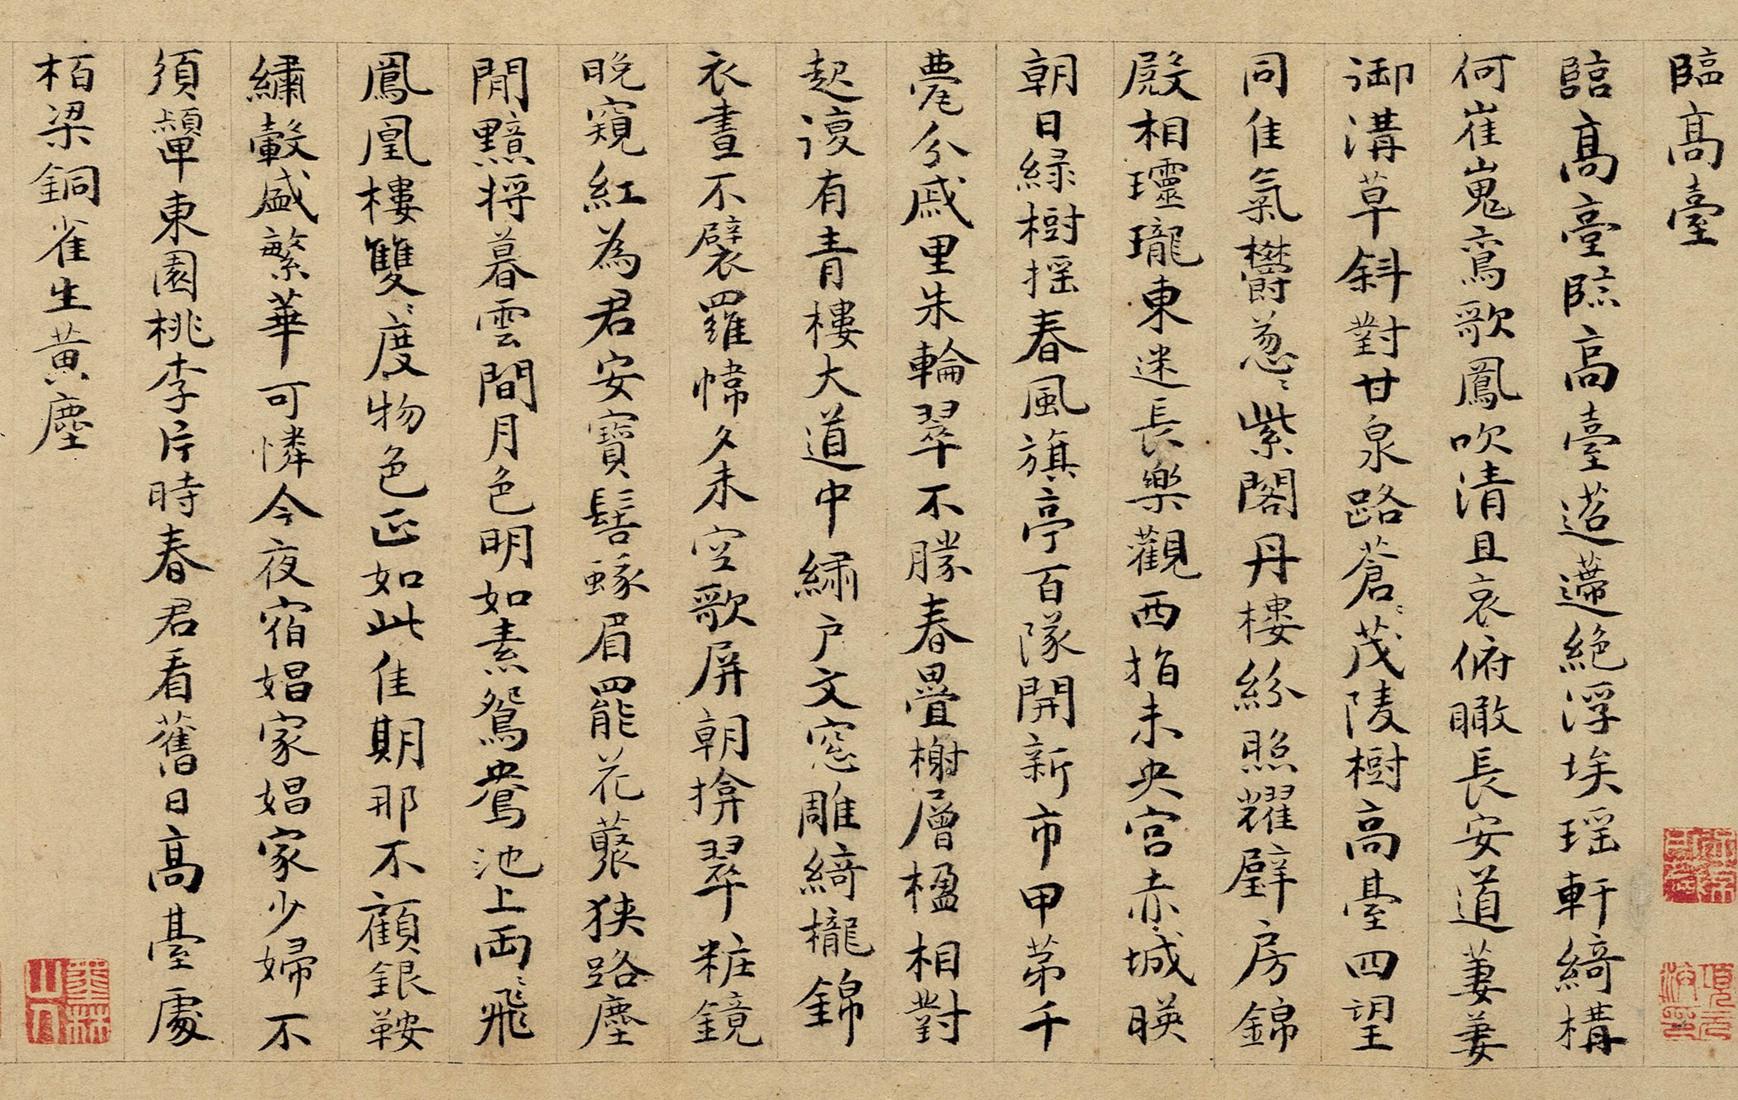 臨髙臺
臨髙臺臨高臺迢遰絶浮埃瑶軒綺構
何崔嵬鸞歌鳳吹清且哀俯瞰長安道萋萋
御溝草斜對甘泉路蒼〻茂陵樹高臺四望
同佳氣欝葱〻紫閣丹樓紛照耀璧房錦
殿相玲瓏東迷長樂觀西指未央宮赤城暎
朝日緑樹揺春風旗亭百隊開新市甲苐千
甍分戚里朱輪翠不勝春疊榭層楹相對
起復有青樓大道中繡户文窓雕綺櫳錦
衣晝不襞羅幃夕未空歌屏朝掩翠粧鏡
晩窺紅為君安寶髻蛾眉罷花藂狭路塵
閒黯将暮雲間月色明如素鴛鴦池上兩〻飛
鳳凰樓雙〻度物色正如此佳期那不顧銀鞍
繡轂盛繁華可憐今夜宿娼家娼家少婦不
須顰東園桃李片時春君看舊日髙臺處
栢梁銅雀生黄塵